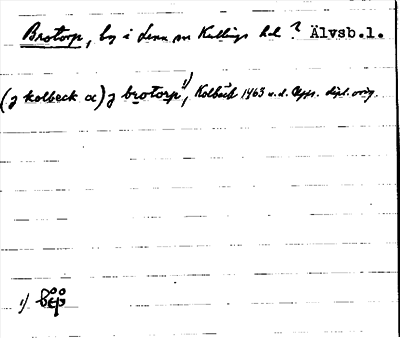 Brotorp, by i Lena sn Kullings hd ? Älvsb.l.
(j kolbeck oc) j brotorp ¹⁾, Kolbäck 1463 u.d. Upps. dipl. orig.
1)